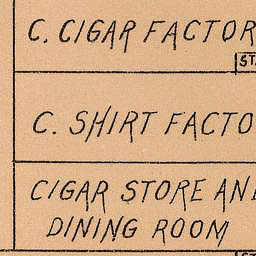 C. CIGAR FACTOR
ST
C. SHIRT FACTO
CIGAR STORE AN
DINING ROOM